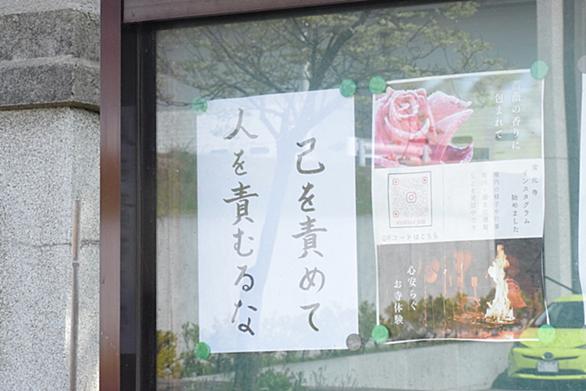 己を責めて
人を責むるな
花の香りに
包まれて
インスタグラム
始めました
QRコードはこちら
心安らぐ
お寺体験